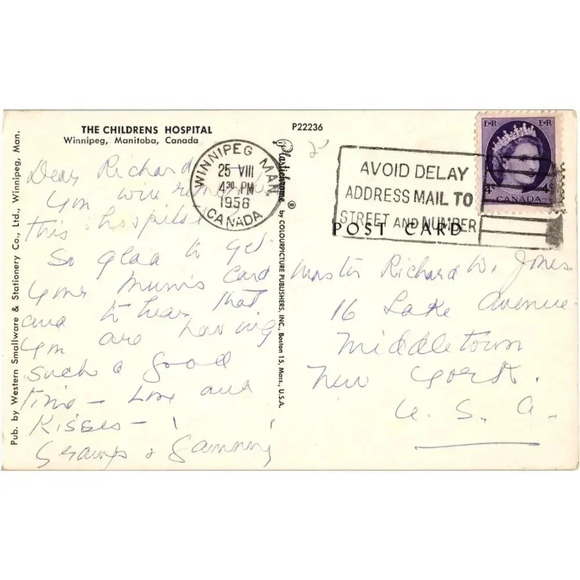 THE CHILDRENS HOSPITAL
Winnipeg, Manitoba, Canada
P22236
Pub. by Western Smallware & Stationery Co., Ltd., Winnipeg, Man.
Plastichrome ® by COLOURPICTURE PUBLISHERS, INC. Boston 15, Mass., U.S.A.
WINNIPEG MAN.
25 VIII
4 30 PM
1956
CANADA
AVOID DELAY
ADDRESS MAIL TO
STREET AND NUMBER
E R E R
4 4
CANADA
POST CARD
Dear Richard
You were
this hospital
So glad to get
your Mum's card
and to hear that
you are having
such a good
time - love and
Kisses - !
Gramps &
Master Richard W. Jones
16 Lake Avenue
Middletown
New York.
U. S. A.